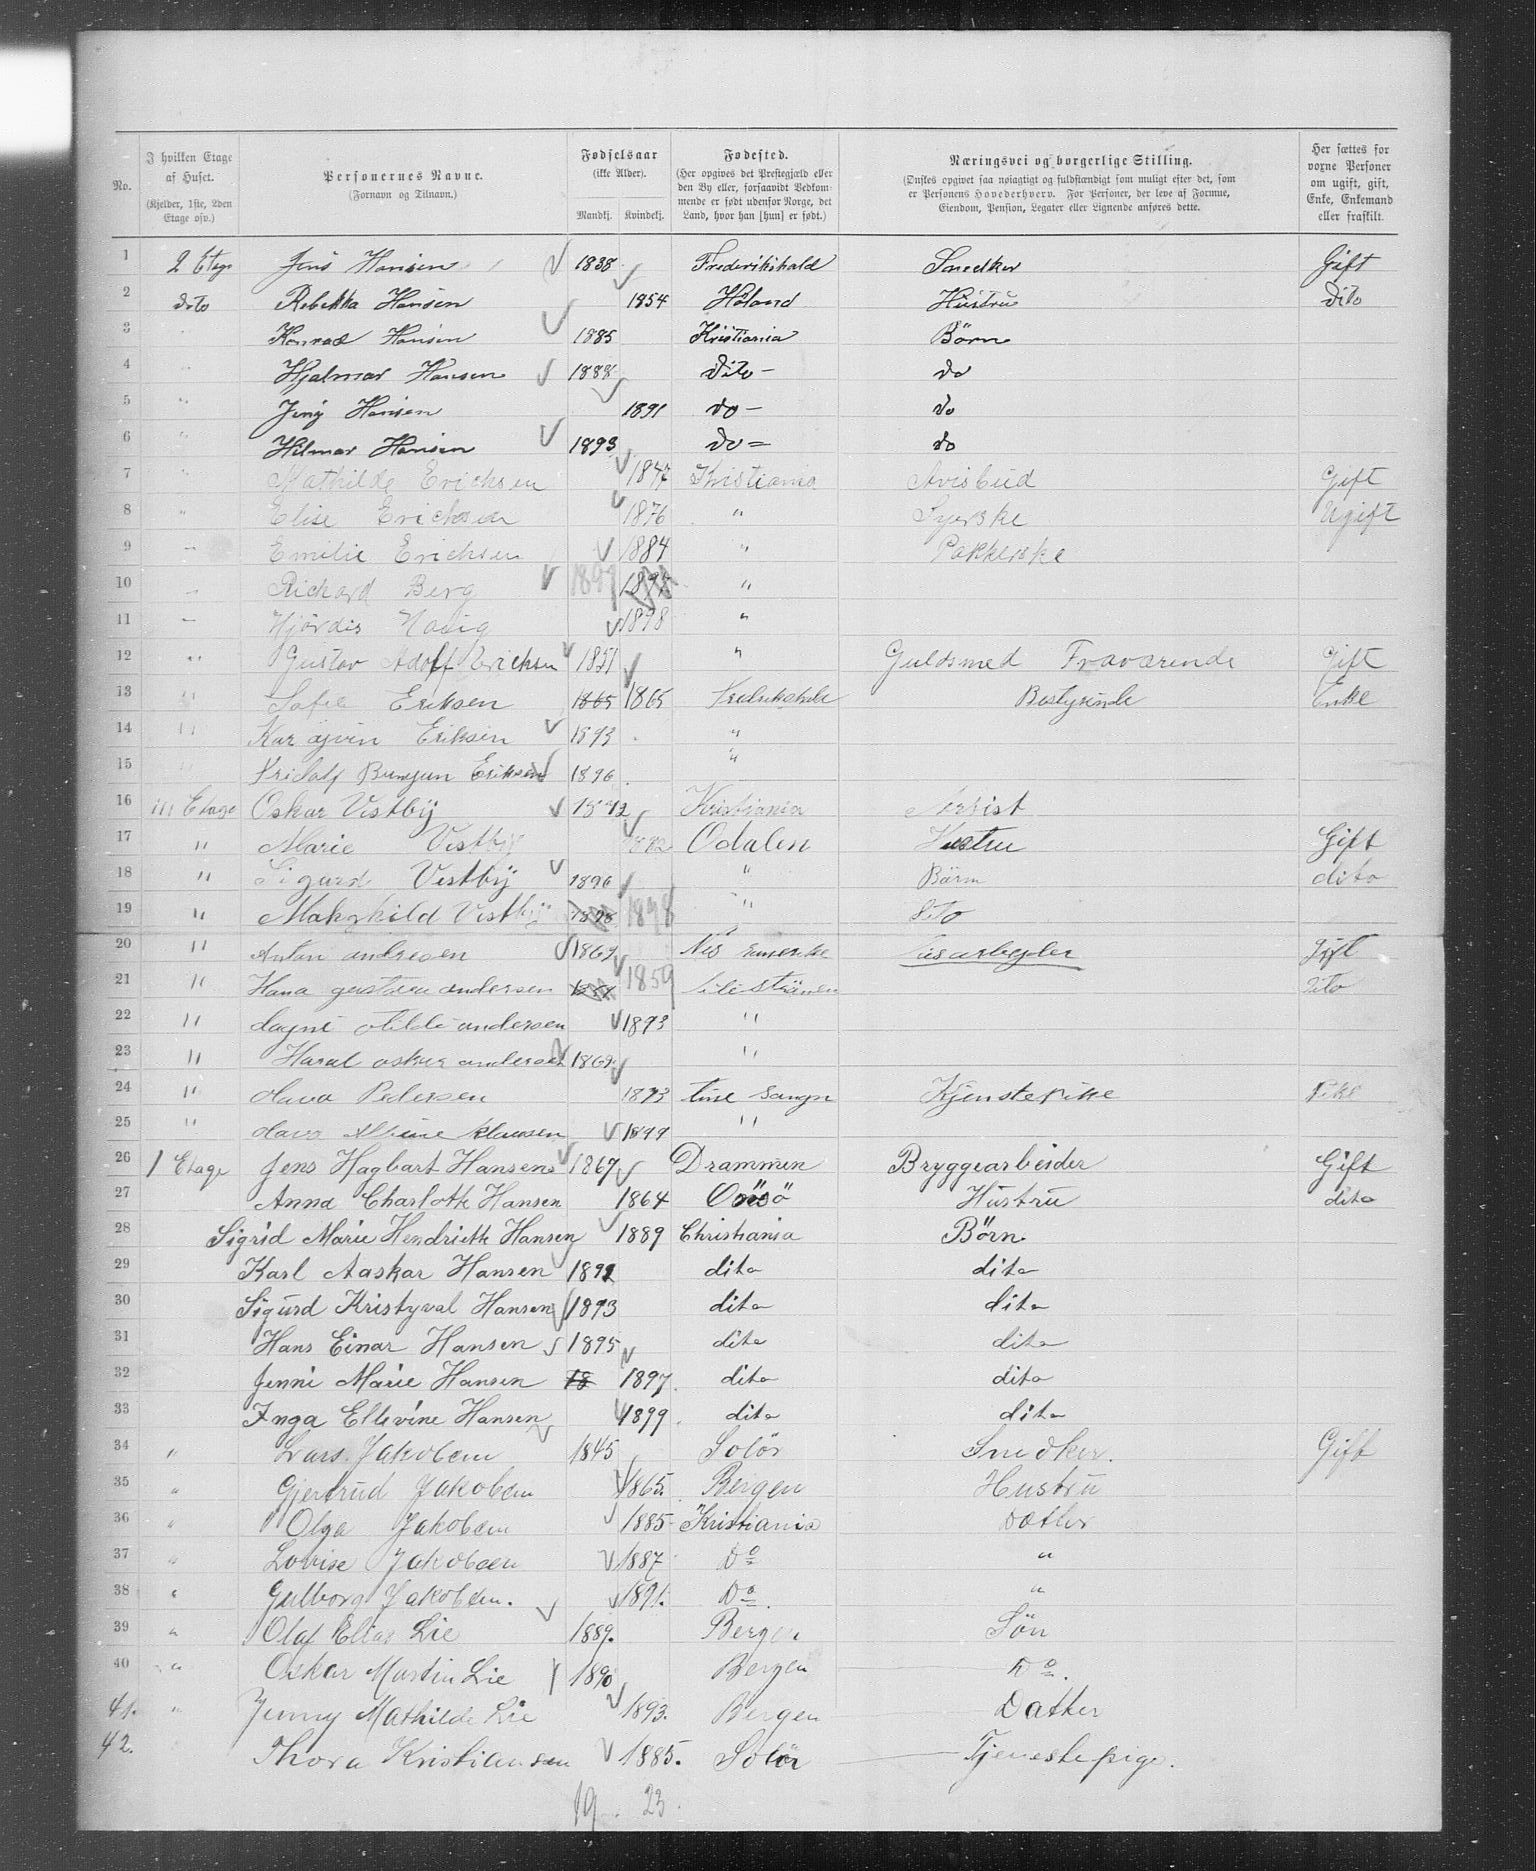 No.
I hvilken Etage af Huset.
(Kjelder, 1ste, 2den Etage osv.)
Personernes Navne.
(Fornavn og Tilnavn.)
Fødselsaar
(ikke Alder).
Mandkj. Kvindekj.
Fødested.
(Her opgives det Prestegjæld eller den By eller, forsaavidt Vedkommende er født udenfor Norge, det Land, hvor han [hun] er født.)
Næringsvei og borgerlige Stilling.
(Ønskes opgivet saa nøiagtigt og fuldstændigt som muligt efter det, som er Personens Hovederhverv. For Personer, der leve af Formue, Eiendom, Pension, Legater eller Lignende anføres dette.
Her sættes for voxne Personer om ugift, gift, Enke, Enkemand eller fraskilt.
1 2 Etage Jens Hansen 1838 Frederikshald Snedker Gift
2 dito Rebekka Hansen 1854 Höland Hustru dito
3 " Konrad Hansen 1885 Kristiania Börn
4 " Hjalmar Hansen 1888 dito - do
5 " Jeny Hansen 1891 do - do
6 " Hilmar Hansen 1893 do = do
7 " Mathilde Erichsen 1847 Kristiania Avisbud Gift
8 " Elise Erichsen 1876 " Syerske Ugift
9 " Emilie Erichsen 1884 " Pakkerske
10 " Richard Berg 1897 "
11 " Hjördis 1898 "
12 " Gustav Adolf Erichsen 1851 " Guldsmed Fraværende gift
13 " Sofie Eriksen 1865 1865 Bestyrinde Enke
14 " Eriksen 1893 "
15 " Fridolf Eriksen 1896 "
16 III Etage Oskar Vestby Kristiania
17 " Marie Vestby Odalen Hustru Gift
18 " Sigurd Vestby 1896 " Börn dito
19 " Vestby 1898 1898 " dito
20 " Anton andresen 1869 Nes Gift
21 " Hana andersen 1859 dito
22 " dagni andersen 1893 "
23 " Haral oskar andersen 1869 "
24 " Pedersen 1873 Tjenstepike Pike
25 " Klausen 1899 "
26 1 Etage Jens Hagbart Hansen 1867 Drammen Bryggearbeider Gift
27 Anna Charlotte Hansen 1864 Hustru dito
28 Sigrid Marie Hendriette Hansen 1889 Christiania Börn
29 Karl Aaskar Hansen 1891 dito dito
30 Sigurd Kristyval Hansen 1893 dito dito
31 Hans Einar Hansen 1895 dito dito
32 Jenni Marie Hansen 18 1897 dito dito
33 Inga Ellevine Hansen 1899 dito dito
34 " Lars Jakobsen 1845 Solör Snedker. Gift
35 " Gjertrud Jakobsen 1865. Bergen Hustru
36 " Olga Jakobsen 1885 Kristiania Datter
37 " Lovise Jakobsen 1887 Do "
38 " Gulborg Jakobsen. 1891. Do. "
39 " Olaf Elias Lie 1889. Bergen Sön
40 " Oskar Martin Lie 1890 Bergen Do.
41. " Jenny Mathilde Lie 1893. Bergen Datter
42. Thora Kristiansen 1885. Solör Tjenestepige.
19 23.